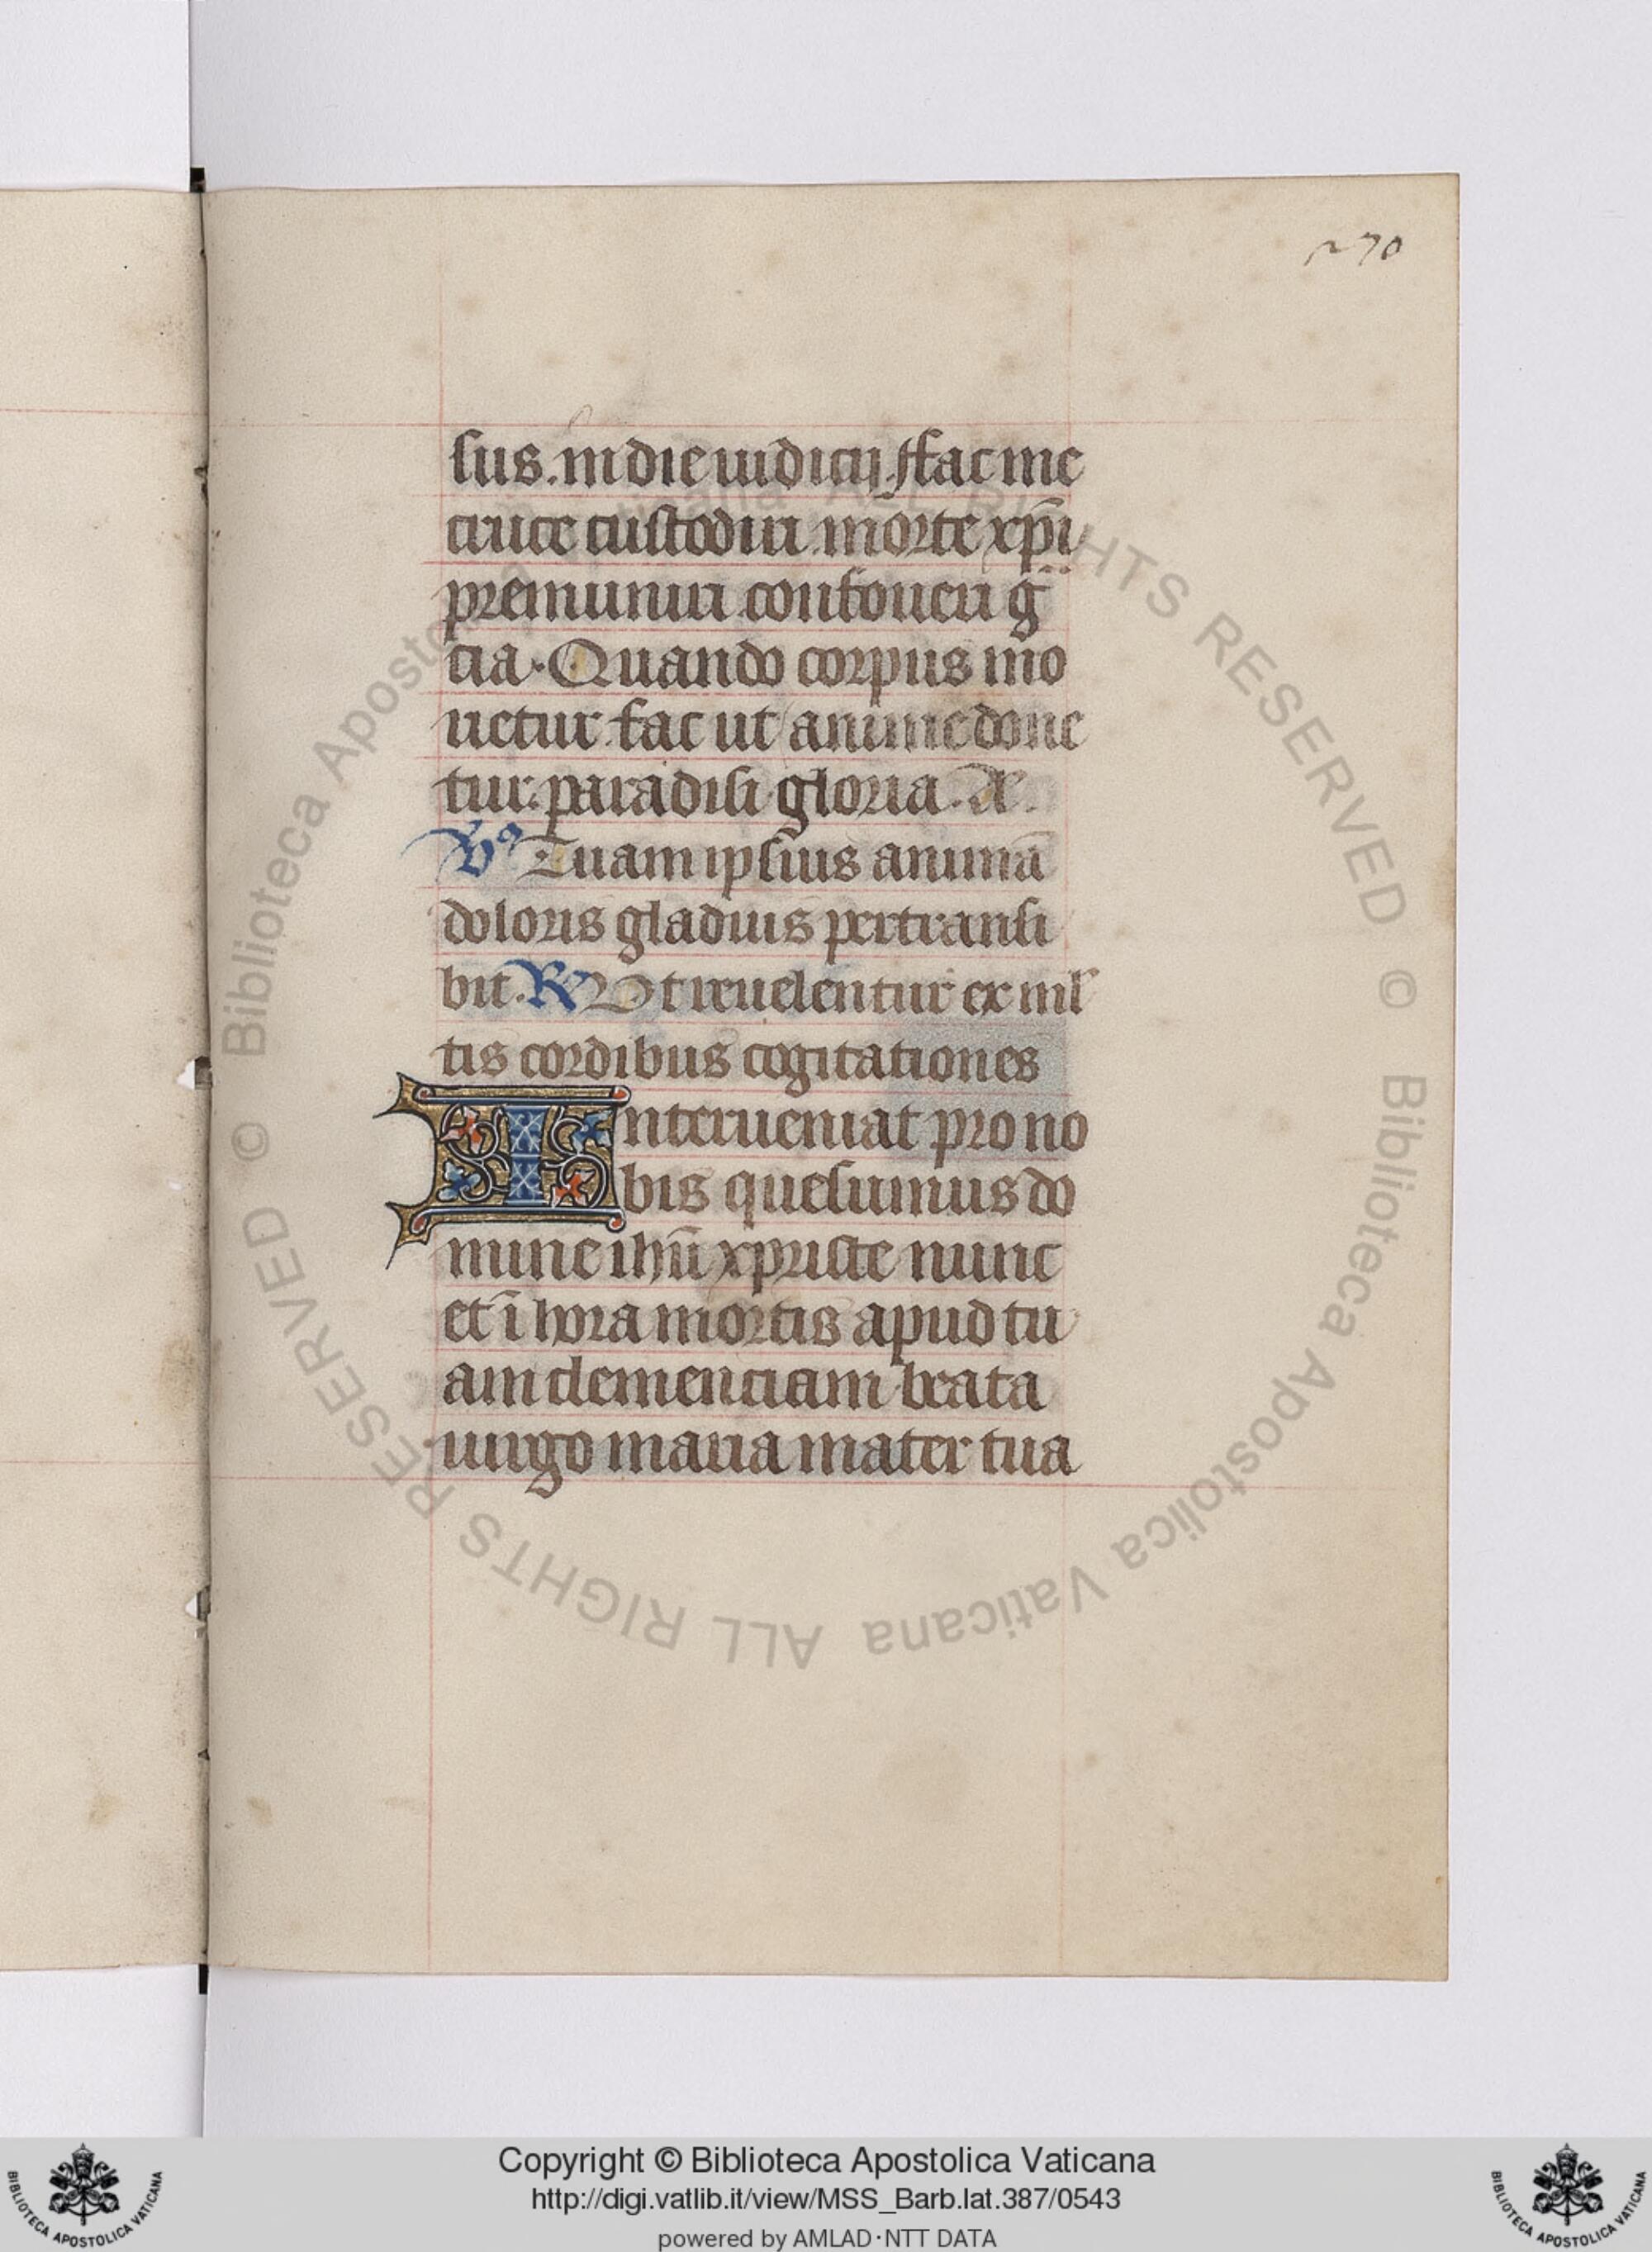 270
sus. in die iudicij. ffac me
cruce custodiri. morte xp̄i
premuniri. confoueri g̈
cia. Quando corpus mo
rietur. fac ut anime done
tur. paradisi gloria. Ae.
Vꝰ Tuam ipsius animā
doloris gladius pertransi
bit. R Vt reuelentur ex ml'
tis cordibus cogitationes
Interueniat pro no
bis quesumus do
mine ihū xpriste nunc
et ī hora mortis apud tu
am clemenciam beata
uirgo maria mater tua
© Biblioteca Apostolica Vaticana ALL RIGHTS RESERVED © Biblioteca Apostolica Vaticana ALL RIGHTS RESERVED
Copyright © Biblioteca Apostolica Vaticana
http://digi.vatlib.it/view/MSS_Barb.lat.387/0543
powered by AMLAD·NTT DATA
BIBLIOTECA APOSTOLICA VATICANA
BIBLIOTECA APOSTOLICA VATICANA